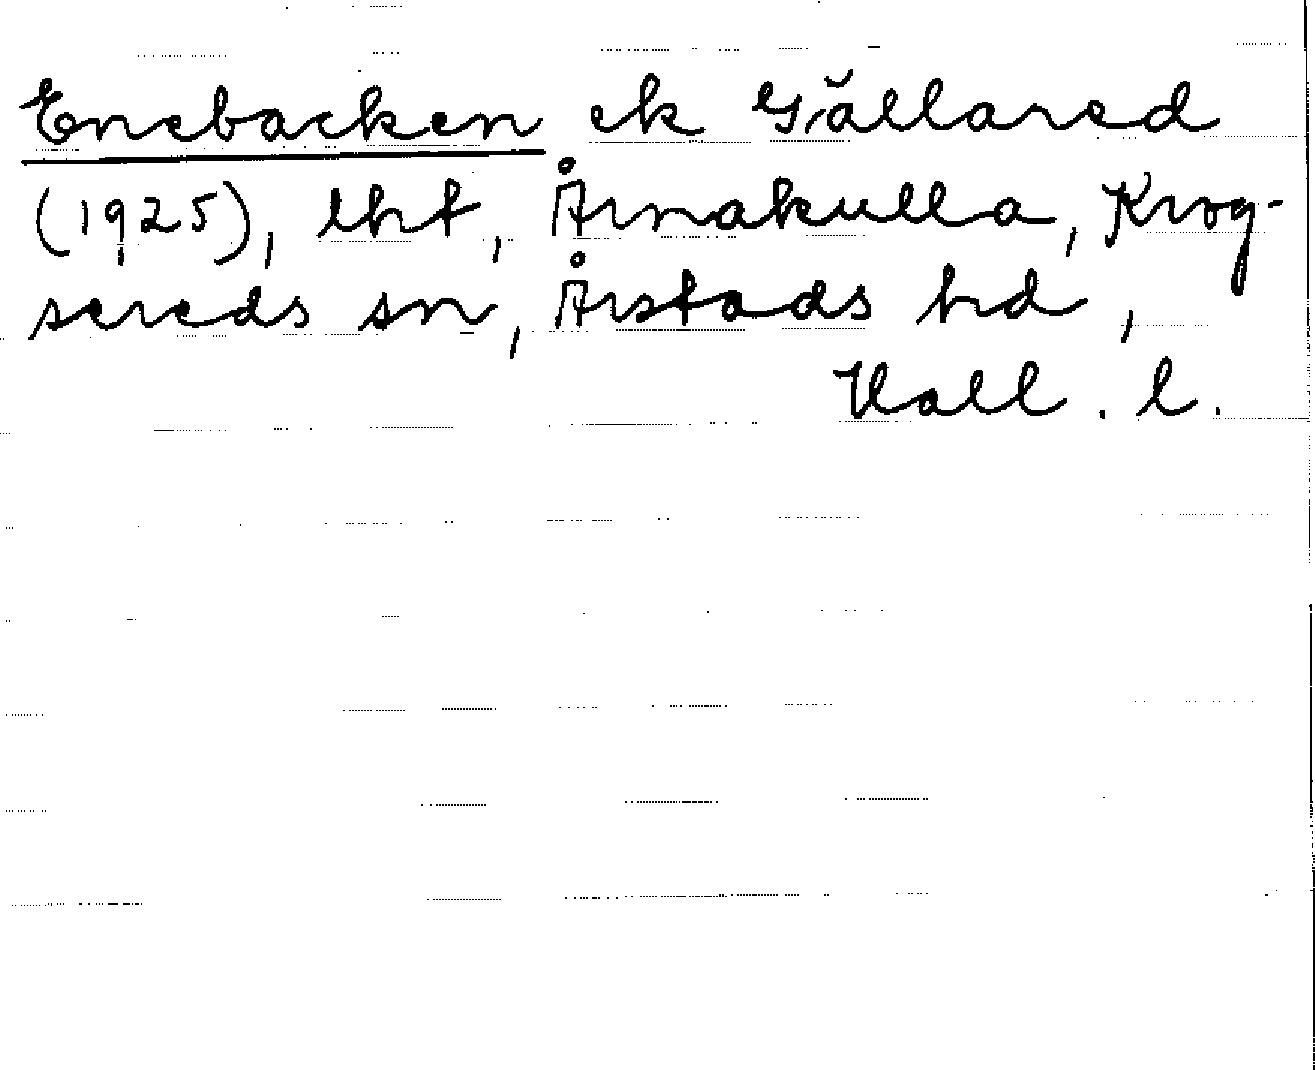 Enebacken ek Gällared
(1925), lht, Årnakulla, Krog-
sereds sn, Årstads hd,
Hall. l.